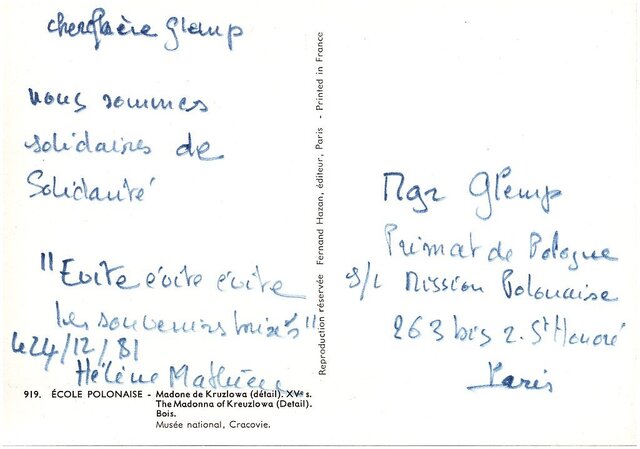 cher frère Glemp
nous sommes
solidaires de
Solidarité
"Evite évite évite
les souvenirs brisés"
le 24/12/81
Hélène Mathieu
919. ÉCOLE POLONAISE - Madone de Kruzlowa (détail). XVᵉ s.
The Madonna of Kreuzlowa (Detail).
Bois.
Musée national, Cracovie.
Reproduction réservée Fernand Hazan, éditeur, Paris - Printed in France
Mgr Glemp
Primat de Pologne
S/c Mission Polonaise
263 bis r. St Honoré
Paris